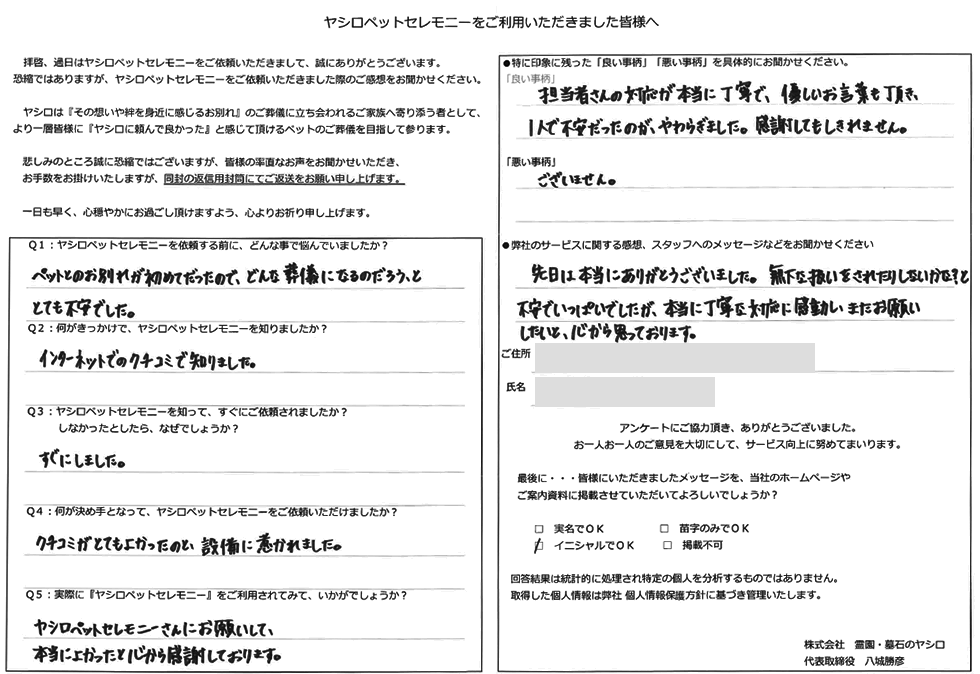 ヤシロペットセレモニーをご利用いただきました皆様へ
拝啓、過日はヤシロペットセレモニーをご依頼いただきまして、誠にありがとうございます。
恐縮ではありますが、ヤシロペットセレモニーをご依頼いただきました際のご感想をお聞かせください。
ヤシロは『その想いや絆を身近に感じるお別れ』のご葬儀に立ち会われるご家族へ寄り添う者として、
より一層皆様に『ヤシロに頼んで良かった』と感じて頂けるペットのご葬儀を目指して参ります。
悲しみのところ誠に恐縮ではございますが、皆様の率直なお声をお聞かせいただき、
お手数をお掛けいたしますが、同封の返信用封筒にてご返送をお願い申し上げます。
一日も早く、心穏やかにお過ごし頂けますよう、心よりお祈り申し上げます。
Q1：ヤシロペットセレモニーを依頼する前に、どんな事で悩んでいましたか？
ペットとのお別れが初めてだったので、どんな葬儀になるのだろう、と
とても不安でした。
Q2：何がきっかけで、ヤシロペットセレモニーを知りましたか？
インターネットでのクチコミで知りました。
Q3：ヤシロペットセレモニーを知って、すぐにご依頼されましたか？
しなかったとしたら、なぜでしょうか？
すぐにしました。
Q4：何が決め手となって、ヤシロペットセレモニーをご依頼いただけましたか？
クチコミがとてもよかったのと、設備に惹かれました。
Q5：実際に『ヤシロペットセレモニー』をご利用されてみて、いかがでしょうか？
ヤシロペットセレモニーさんにお願いして、
本当によかったと心から感謝しております。
●特に印象に残った「良い事柄」「悪い事柄」を具体的にお聞かせください。
「良い事柄」
担当者さんの対応が本当に丁寧で、優しいお言葉も頂き、
1人で不安だったのが、やわらぎました。感謝してもしきれません。
「悪い事柄」
ございません。
●弊社のサービスに関する感想、スタッフへのメッセージなどをお聞かせください
先日は本当にありがとうございました。無下な扱いをされたりしないかな？と
不安でいっぱいでしたが、本当に丁寧な対応に感動し、またお願い
したいと、心から思っております。
ご住所
氏名
アンケートにご協力頂き、ありがとうございました。
お一人お一人のご意見を大切にして、サービス向上に努めてまいります。
最後に・・・皆様にいただきましたメッセージを、当社のホームページや
ご案内資料に掲載させていただいてよろしいでしょうか？
□ 実名でＯＫ □ 苗字のみでＯＫ
☑ イニシャルでＯＫ □ 掲載不可
回答結果は統計的に処理され特定の個人を分析するものではありません。
取得した個人情報は弊社 個人情報保護方針に基づき管理いたします。
株式会社 霊園・墓石のヤシロ
代表取締役 八城勝彦